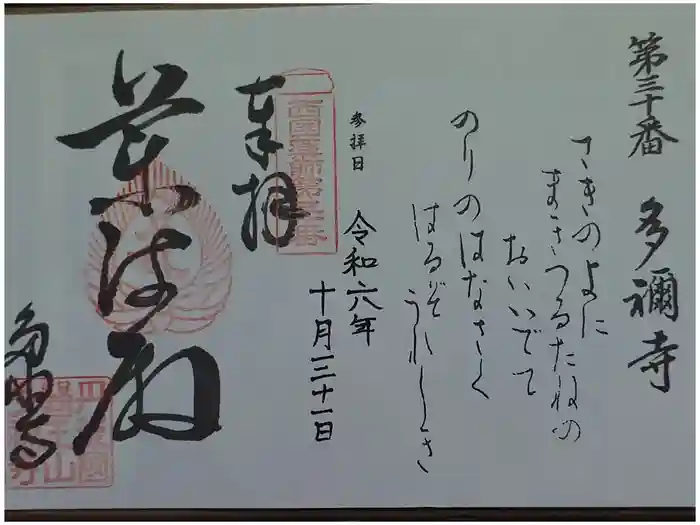 第三十番 多禰寺
さきのよに
まきつるたねの
おいいでて
のりのはなさく
はるぞうれしき
参拝日 令和六年
十月三十一日
奉拝
西国薬師第三十番
多禰寺